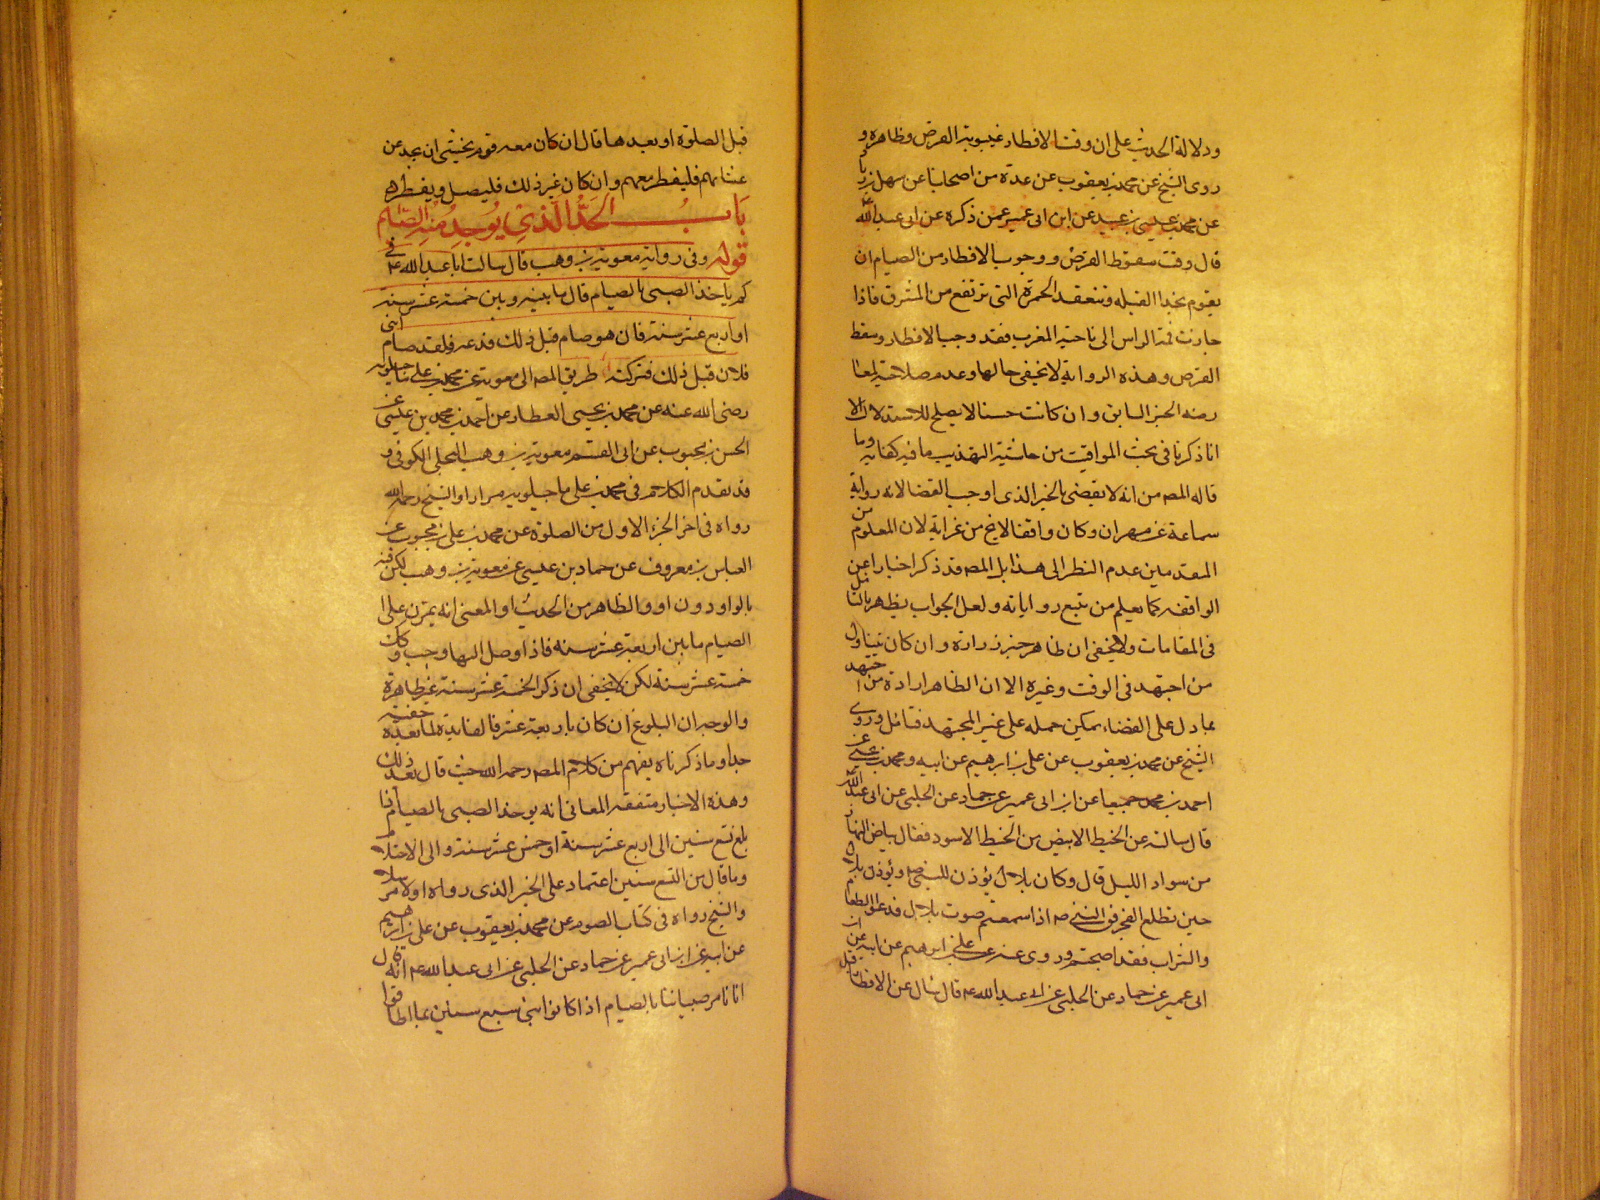 ودلالة الحديث على ان وقت الافطار غيبوبة القرص وظاهرة و
روى الشيخ عن محمد بن يعقوب عن عدة من اصحابنا عن سهل بن زياد
عن محمد بن عيسى بن عبيد عن ابن ابى عمير عمن ذكره عن ابى عبد الله
قال وقت سقوط القرص ووجوب الافطار من الصيام ان
يقوم بحذا القبلة ويتفقد الحمرة التى ترتفع من المشرق فاذا
جازت قمة الراس الى ناحية المغرب فقد وجب الافطار وسقط
القرص وهذه الرواية لا يخفى حالها وعدم صلاحية
الخبر السابق وان كانت حسنا لا يصلح للاستدلال الا
انا ذكرنا فى بحث المواقيت من حاشية التهذيب ما فيه كفاية وما
قاله المصـ من انه لا يقضى بالخبر الذى اوجب القضا لانه رواية
سماعة بن مهران وكان واقفا لا يخ من غرابة لان المعلوم من
المتقدمين عدم النظر الى هذا بل المصـ قد ذكر اخبارا عن
الواقفه كما يعلم من تتبع رواياته ولعل الجواب يظهر بالتامل
فى المقامات ولا يخفى ان ظاهر خبر زرارة وان كان يتناول
من اجتهد فى الوقت وغيره الا ان الظاهر ارادة من اجتهد
بما دل على القضاء يمكن حمله على غير المجتهد فتامل وروى
الشيخ عن محمد بن يعقوب عن على بن ابرهيم عن ابيه ومحمد بن يحيى عن
احمد بن محمد جميعا عن ابن ابى عمير عن حماد عن الحلبى عن ابى عبد الله
قال سالته عن الخيط الابيض من الخيط الاسود فقال بياض النهار
من سواد الليل قال وكان بلال يؤذن للنبى صـ ويؤذن بلال
حين تطلع الفجر فق النبى صـ اذا سمعتم صوت بلال فدعوا الطعام
والشراب فقد اصبحتم وروى عن على بن ابرهيم عن ابيه عن ابن
ابى عمير عن حماد عن الحلبى عن ابى عبد الله ع قال سئل عن الافطار قبل
قبل الصلوة او بعدها قال ان كان معه قوم يخشى ان يحبسهم عن
عشائهم فليفطر معهم وان كان غير ذلك فليصل ويفطر هم
باب الحد الذى يوخذ فيه الصبيان
قوله وفى رواية معوية بن وهب قال سالت ابا عبد الله ع فى
كم يؤخذ الصبى بالصيام قال ما بينه وبين خمسة عشر سنة
او اربع عشر سنة فان هو صام قبل ذلك فدعه فلقد صام ابنى
فلان قبل ذلك فتركته طريق المصـ الى معوية عن محمد بن على ماجيلويه
رضى الله عنه عن محمد بن يحيى العطار عن احمد بن محمد بن عيسى عن
الحسن بن محبوب عن ابى القسم معوية بن وهب البجلى الكوفى و
قد تقدم الكلام فى محمد بن على ماجيلويه مرارا والشيخ رحمه الله
رواه فى اخر الجزء الاول من الصلوة عن محمد بن على بن محبوب عن
العباس بن معروف عن حماد بن عيسى عن معوية بن وهب لكن فيه
بالواو دون او والظاهر من الحديث او والمعنى انه يمرن على
الصيام ما بين اربعة عشر سنة فاذا وصل اليها وجب وكان
خمسة عشر سنة لكن لا يخفى ان ذكر الخمسة عشر سنة غير ظاهرة
والوجه ان البلوغ ان كان باربعة عشر فالفايدة لما بعده خفية
جدا وما ذكرناه يفهم من كلام المصـ رحمه الله حيث قال بعد ذلك
وهذه الاخبار متفقة المعانى انه يوخذ الصبى بالصيام اذا
بلغ تسع سنين الى اربع عشر سنة او خمس عشر سنة والى الاحتلام
وما قال من التسع سنين اعتماد على الخبر الذى رواه اولا مرسلا
والشيخ رواه فى كتاب الصوم عن محمد بن يعقوب عن على بن ابرهيم
عن ابيه عن ابن ابى عمير عن حماد عن الحلبى عن ابى عبد الله ع انه قال
انا نامر صبياننا بالصيام اذا كانوا بنى سبع سنين بما اطاقوا